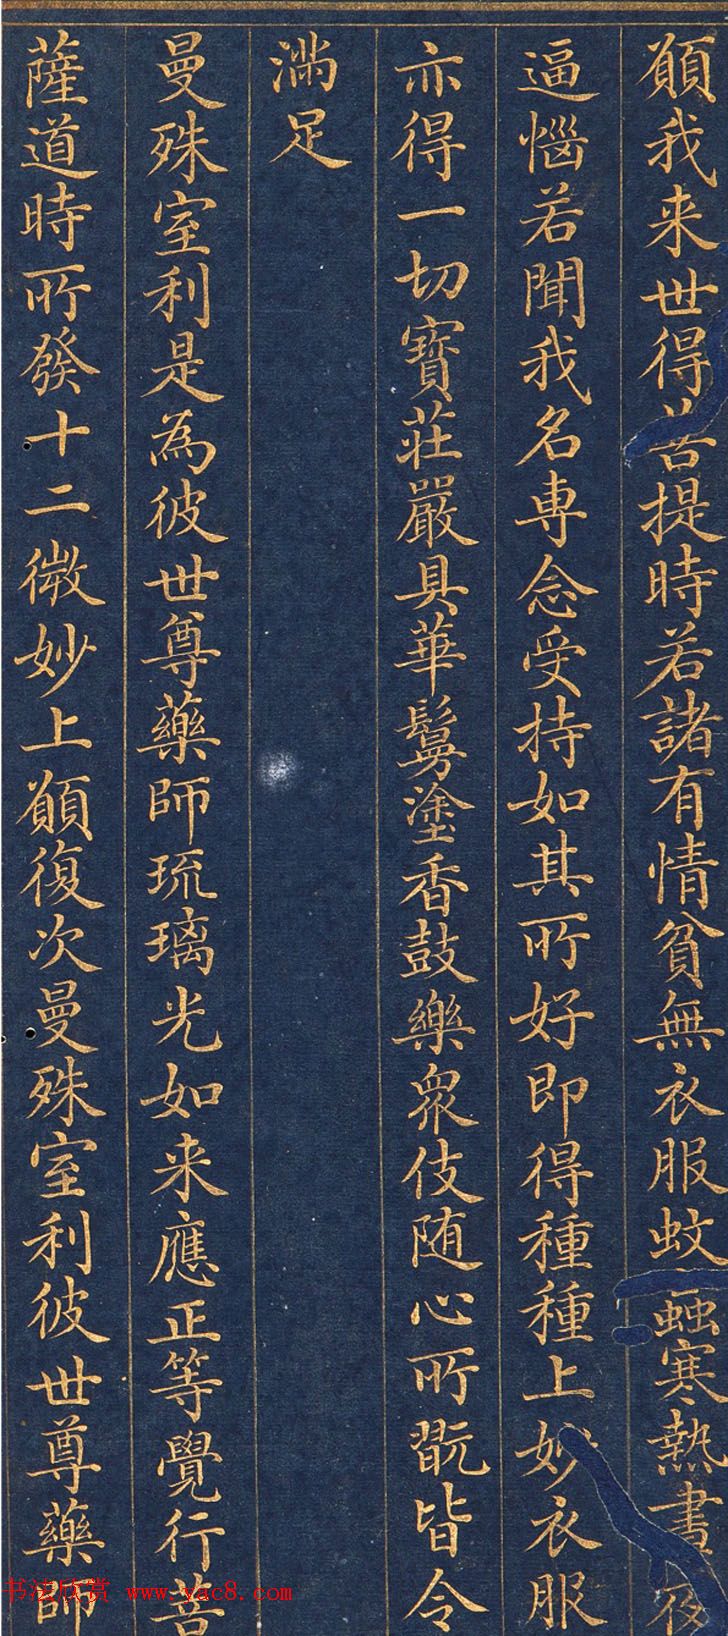 願我来世得菩提時若諸有情貧無衣服蚊蝱寒熱晝夜
逼惱若聞我名専念受持如其所好即得種種上妙衣服
亦得一切寳莊嚴具華鬘塗香鼓樂衆伎随心所翫皆令
滿足
曼殊室利是為彼世尊藥師琉璃光如来應正等覺行菩
薩道時所發十二微妙上願復次曼殊室利彼世尊藥師
书法欣赏 www.yac8.com